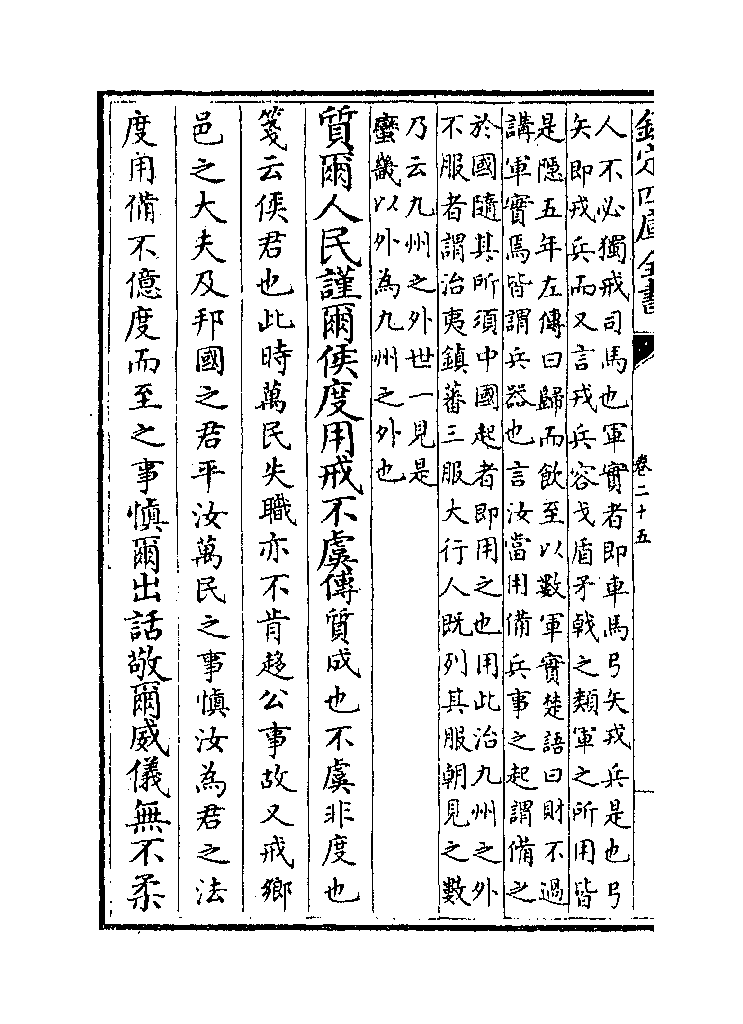 欽定四庫全書
卷二十五
人不必獨戒司馬也軍實者即車馬弓矢戎兵是也弓
矢即戎兵而又言戎兵容戈盾矛戟之類軍之所用皆
是隱五年左傳曰歸而飲至以數軍實楚語曰財不過
講軍實焉皆謂兵器也言汝當用備兵事之起謂備之
於國隨其所須中國起者即用之也用此治九州之外
不服者謂治夷鎮蕃三服大行人既列其服朝見之數
乃云九州之外世一見是
蠻畿以外為九州之外也
質爾人民謹爾侯度用戒不虞傳質成也不虞非度也
箋云侯君也此時萬民失職亦不肯趨公事故又戒鄉
邑之大夫及邦國之君平汝萬民之事慎汝為君之法
度用備不億度而至之事慎爾出話敬爾威儀無不柔